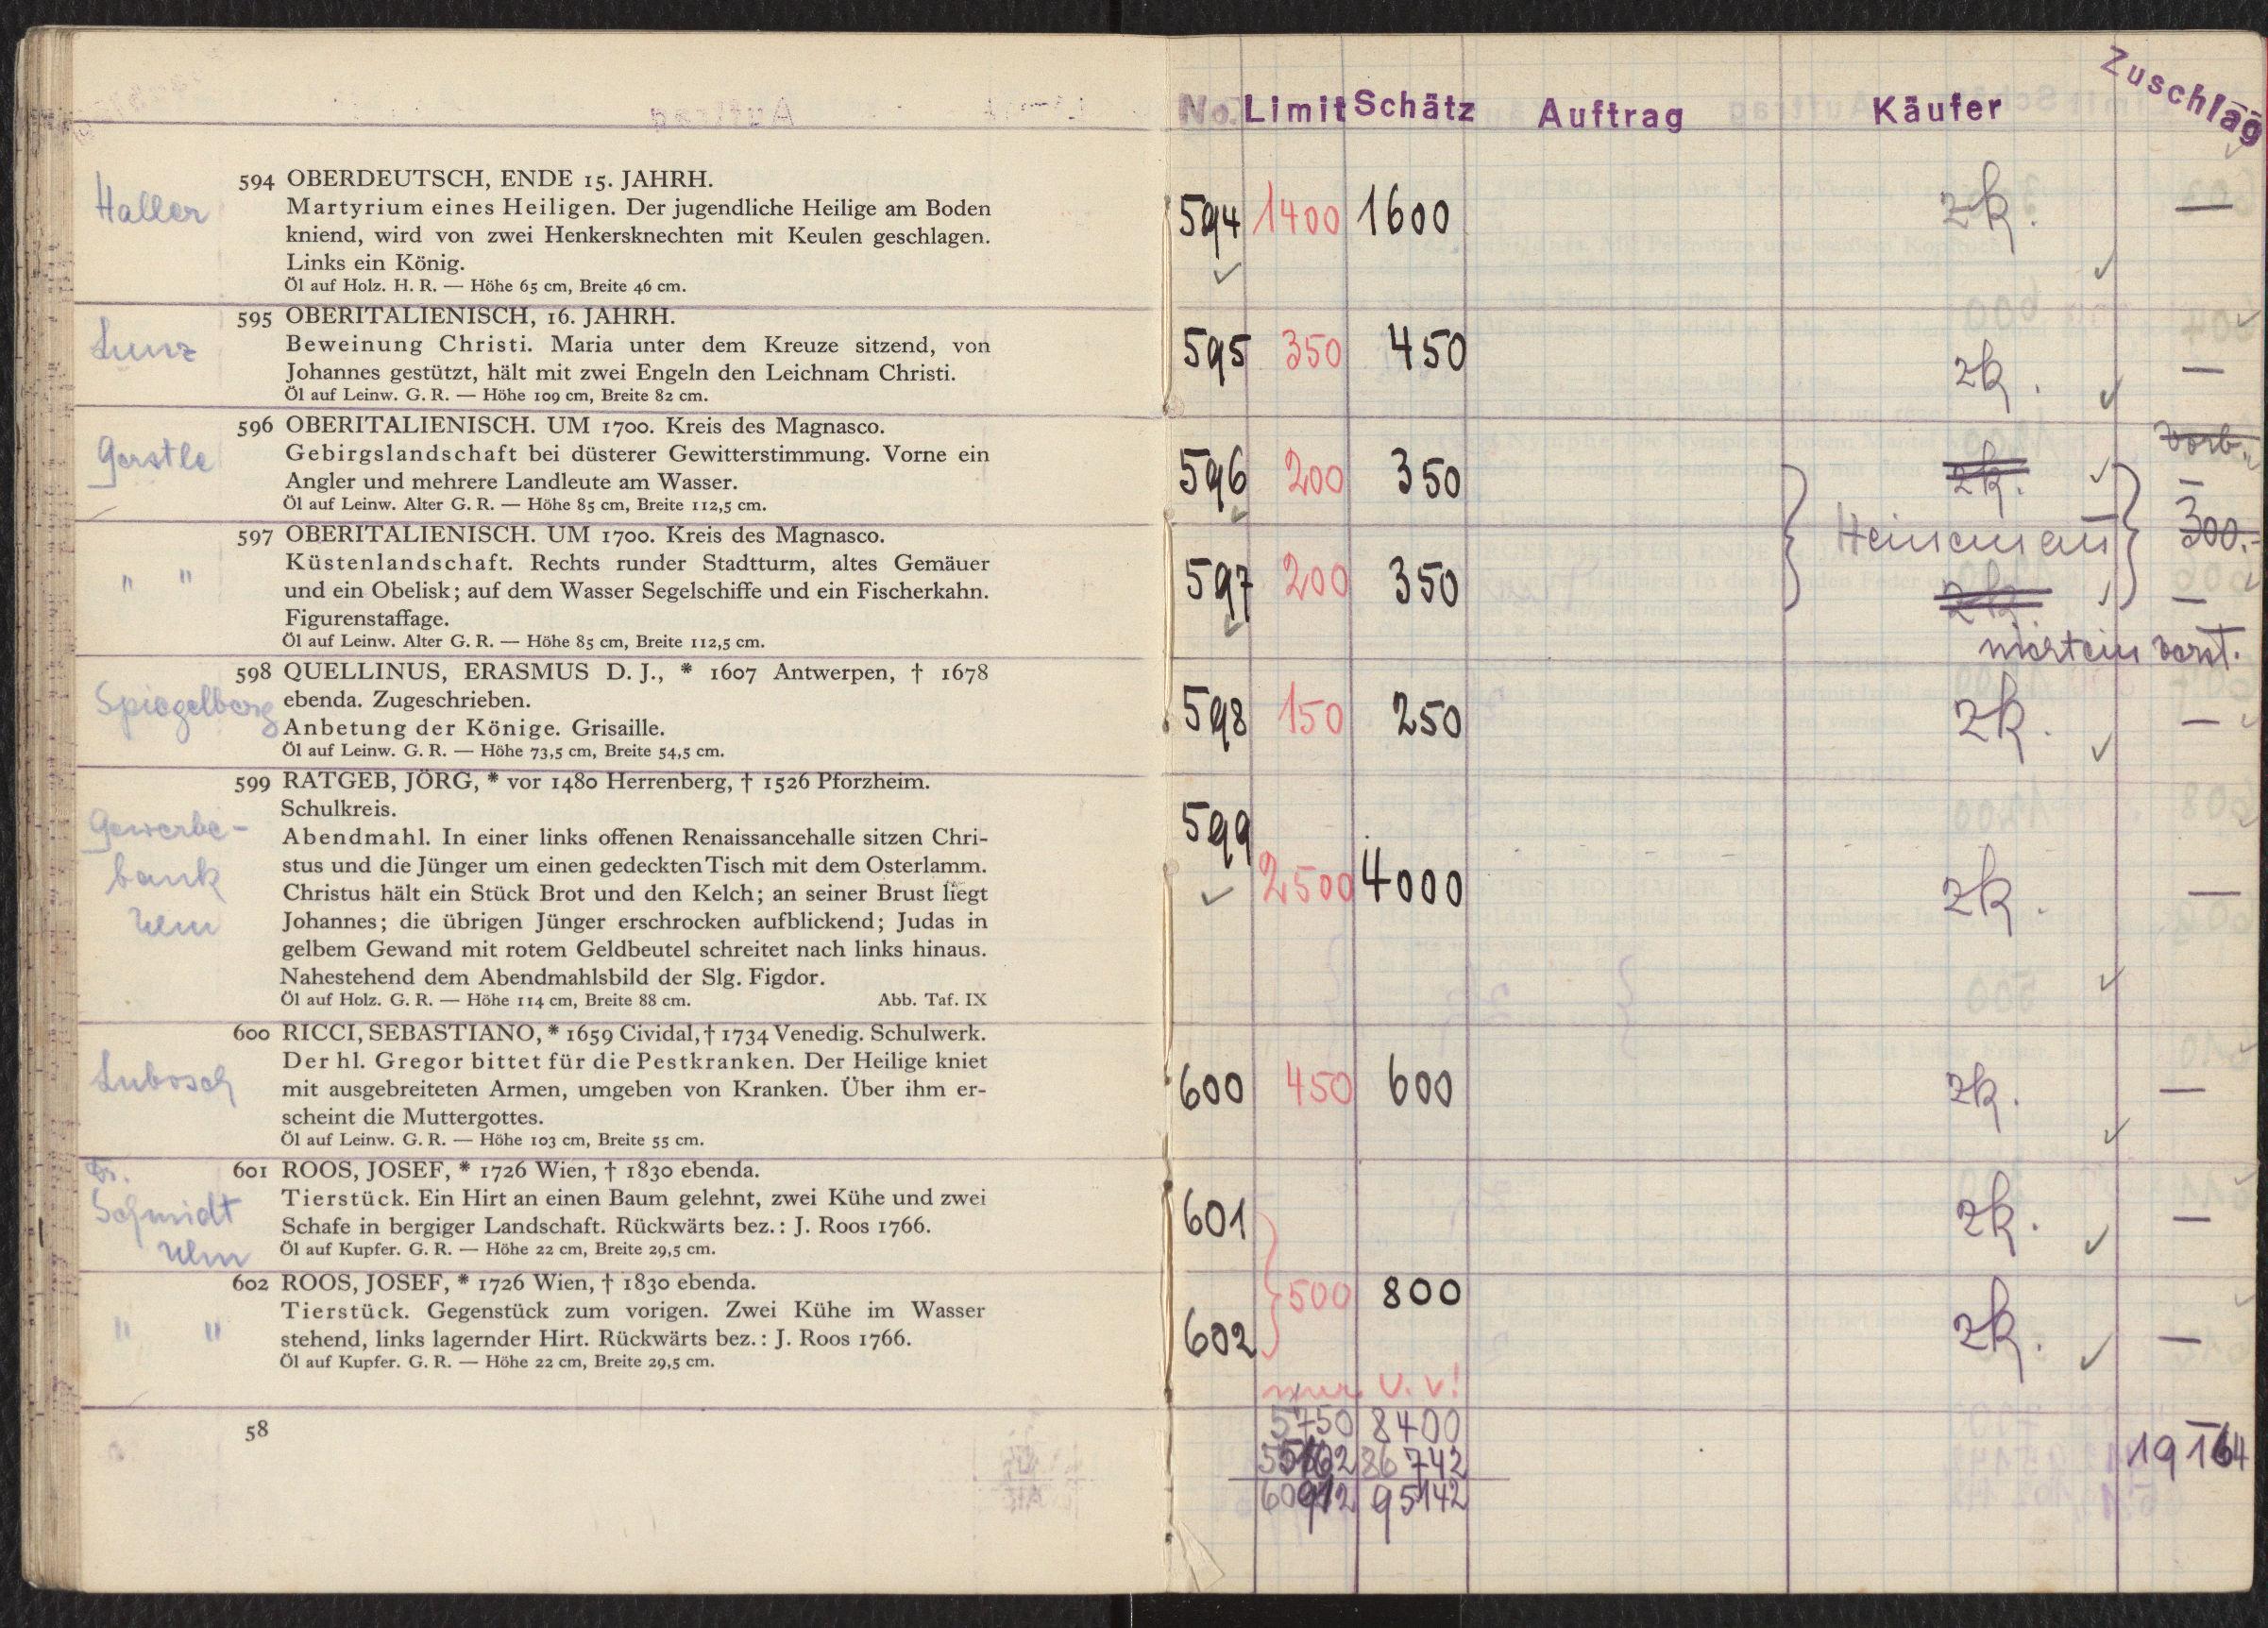 Haller
594 OBERDEUTSCH, ENDE 15. JAHRH.
Martyrium eines Heiligen. Der jugendliche Heilige am Boden
kniend, wird von zwei Henkersknechten mit Keulen geschlagen.
Links ein König.
Öl auf Holz. H. R. — Höhe 65 cm, Breite 46 cm.
Lunz
595 OBERITALIENISCH, 16. JAHRH.
Beweinung Christi. Maria unter dem Kreuze sitzend, von
Johannes gestützt, hält mit zwei Engeln den Leichnam Christi.
Öl auf Leinw. G. R. — Höhe 109 cm, Breite 82 cm.
Gerstle
596 OBERITALIENISCH. UM 1700. Kreis des Magnasco.
Gebirgslandschaft bei düsterer Gewitterstimmung. Vorne ein
Angler und mehrere Landleute am Wasser.
Öl auf Leinw. Alter G. R. — Höhe 85 cm, Breite 112,5 cm.
" "
597 OBERITALIENISCH. UM 1700. Kreis des Magnasco.
Küstenlandschaft. Rechts runder Stadtturm, altes Gemäuer
und ein Obelisk; auf dem Wasser Segelschiffe und ein Fischerkahn.
Figurenstaffage.
Öl auf Leinw. Alter G. R. — Höhe 85 cm, Breite 112,5 cm.
Spiegelberg
598 QUELLINUS, ERASMUS D. J., * 1607 Antwerpen, † 1678
ebenda. Zugeschrieben.
Anbetung der Könige. Grisaille.
Öl auf Leinw. G. R. — Höhe 73,5 cm, Breite 54,5 cm.
Gewerbe-
bank
Ulm
599 RATGEB, JÖRG, * vor 1480 Herrenberg, † 1526 Pforzheim.
Schulkreis.
Abendmahl. In einer links offenen Renaissancehalle sitzen Chri-
stus und die Jünger um einen gedeckten Tisch mit dem Osterlamm.
Christus hält ein Stück Brot und den Kelch; an seiner Brust liegt
Johannes; die übrigen Jünger erschrocken aufblickend; Judas in
gelbem Gewand mit rotem Geldbeutel schreitet nach links hinaus.
Nahestehend dem Abendmahlsbild der Slg. Figdor.
Öl auf Holz. G. R. — Höhe 114 cm, Breite 88 cm. Abb. Taf. IX
Lubosch
600 RICCI, SEBASTIANO, * 1659 Cividal, † 1734 Venedig. Schulwerk.
Der hl. Gregor bittet für die Pestkranken. Der Heilige kniet
mit ausgebreiteten Armen, umgeben von Kranken. Über ihm er-
scheint die Muttergottes.
Öl auf Leinw. G. R. — Höhe 103 cm, Breite 55 cm.
Dr.
Schmidt
Ulm
601 ROOS, JOSEF, * 1726 Wien, † 1830 ebenda.
Tierstück. Ein Hirt an einen Baum gelehnt, zwei Kühe und zwei
Schafe in bergiger Landschaft. Rückwärts bez.: J. Roos 1766.
Öl auf Kupfer. G. R. — Höhe 22 cm, Breite 29,5 cm.
" "
602 ROOS, JOSEF, * 1726 Wien, † 1830 ebenda.
Tierstück. Gegenstück zum vorigen. Zwei Kühe im Wasser
stehend, links lagernder Hirt. Rückwärts bez.: J. Roos 1766.
Öl auf Kupfer. G. R. — Höhe 22 cm, Breite 29,5 cm.
58
No. Limit Schätz Auftrag Käufer Zuschlag
594 1400 1600 zk. —
595 350 450 zk. —
vorb.
596 200 350 zk. —
Heinemann 300.-
597 200 350 zk. —
verst.
598 150 250 zk. —
599 2500 4000 zk. —
600 450 600 zk. —
601 zk. —
500 800
602 zk. —
nur v. v!
5750 8400
86 742
60912 95142
19 164